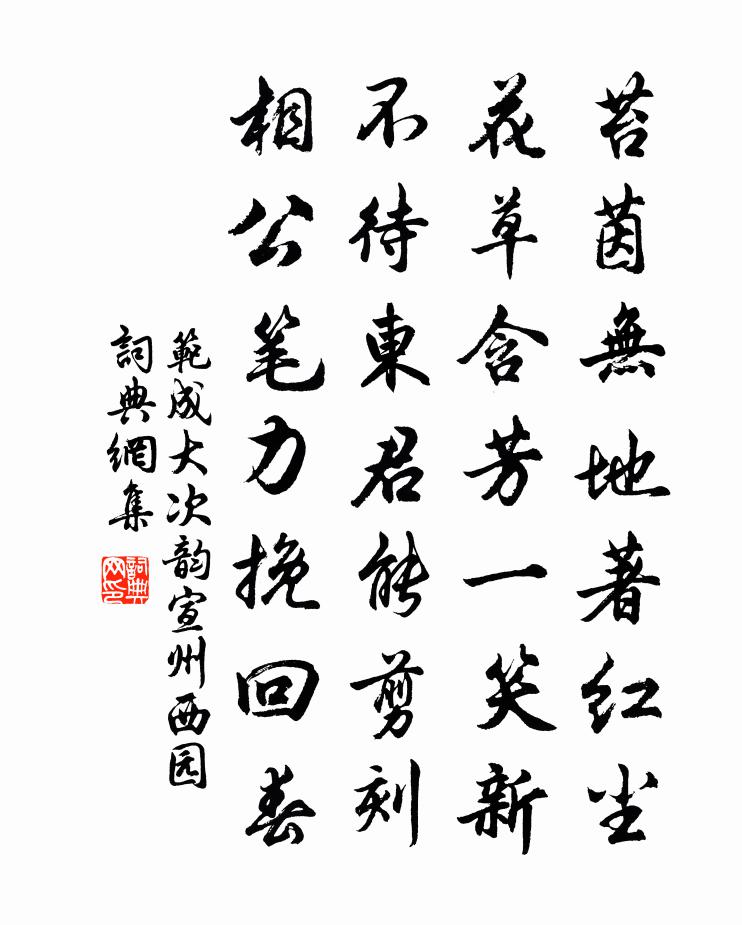 苔茵無地著红尘
花草含芳一笑新
不待東君能剪刻
相公笔力挽回春
範成大次韵宣州西园
詞典網集
詞典網印